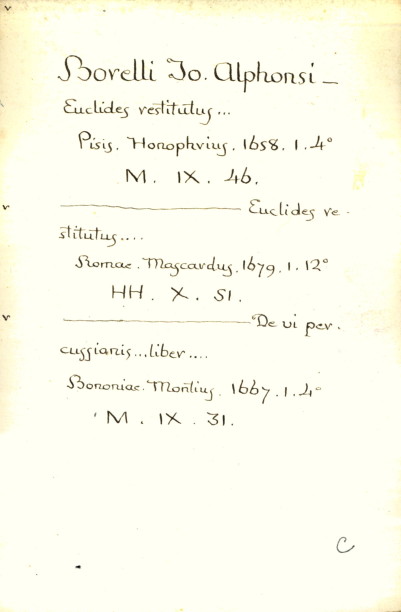 Borelli Jo. Alphonsi —
Euclides restitutus...
Pisis. Honophrius. 1658. 1. 4°
M. IX. 46.
——— Euclides re-
stitutus....
Romae. Mascardus. 1679. 1. 12°
HH. X. 51.
——— De vi per-
cussianis...liber....
Bononiae. Montius. 1667. 1. 4°
M. IX. 31.
C